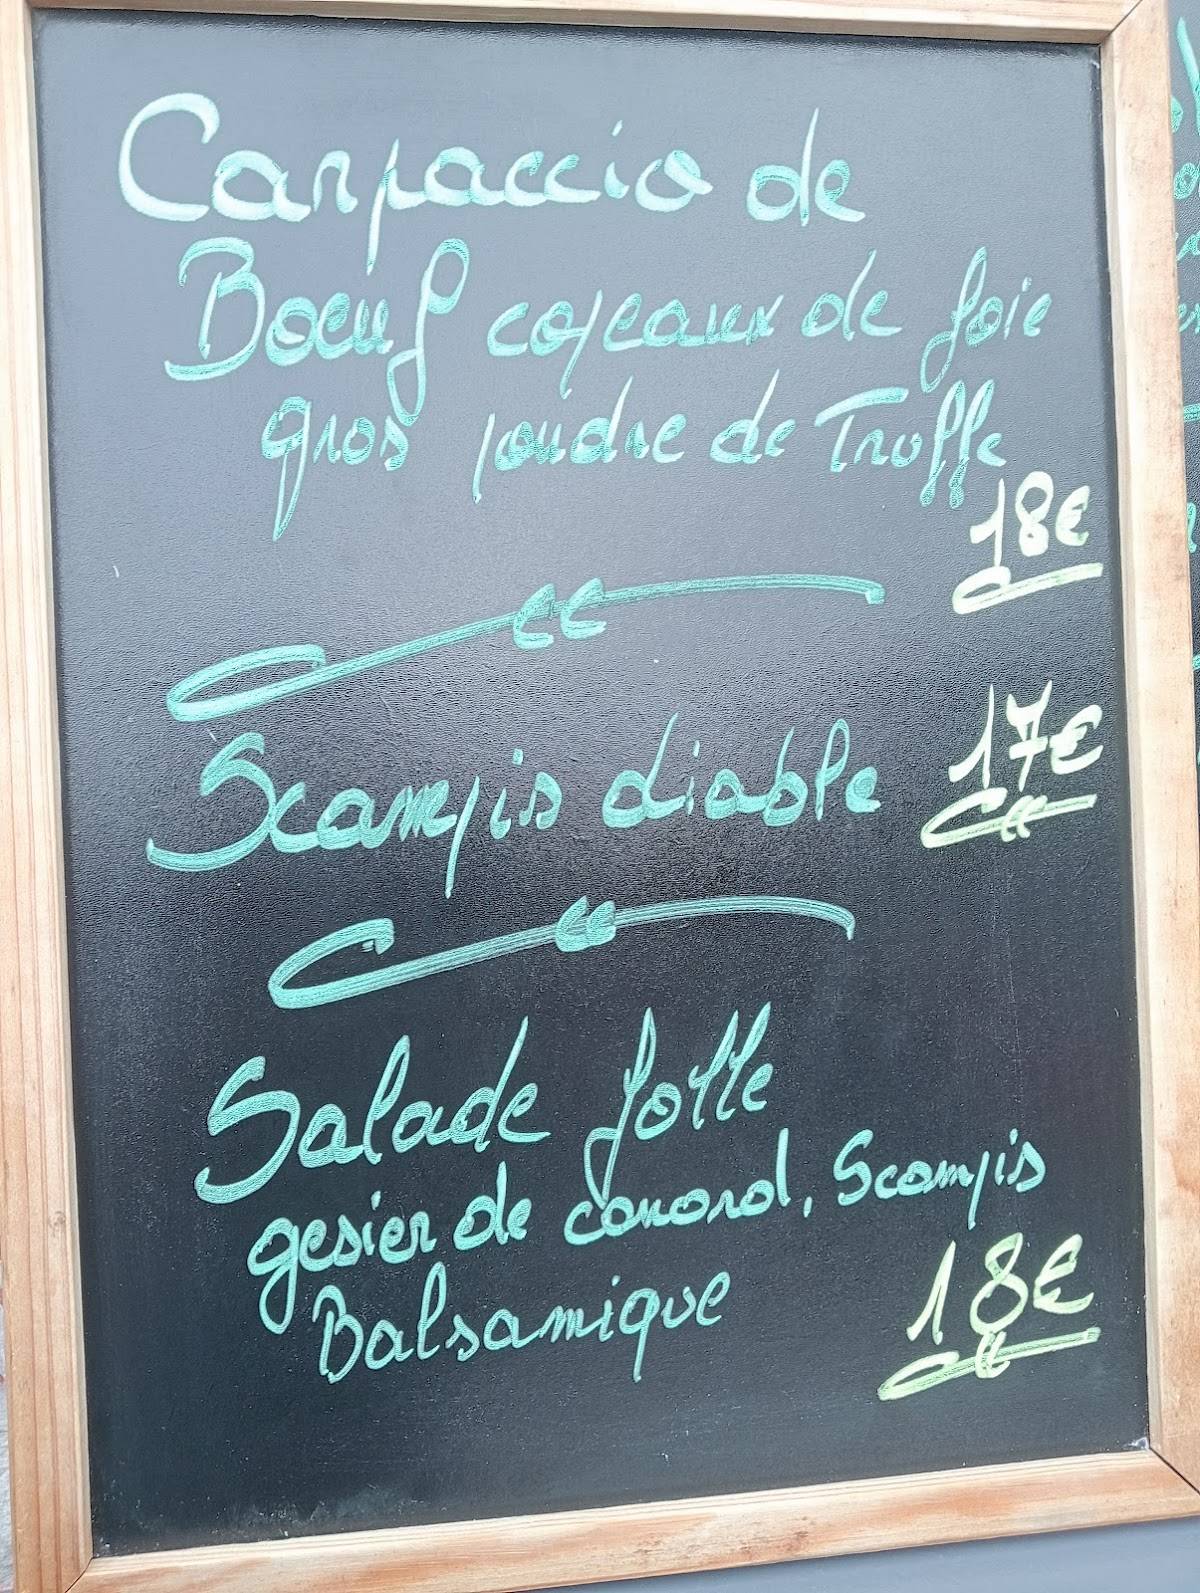 Carpaccio de
Boeuf copeaux de foie
gros poudre de Truffe
18€
Scampis diable
17€
Salade folle
gesier de canard, Scampis
Balsamique
18€